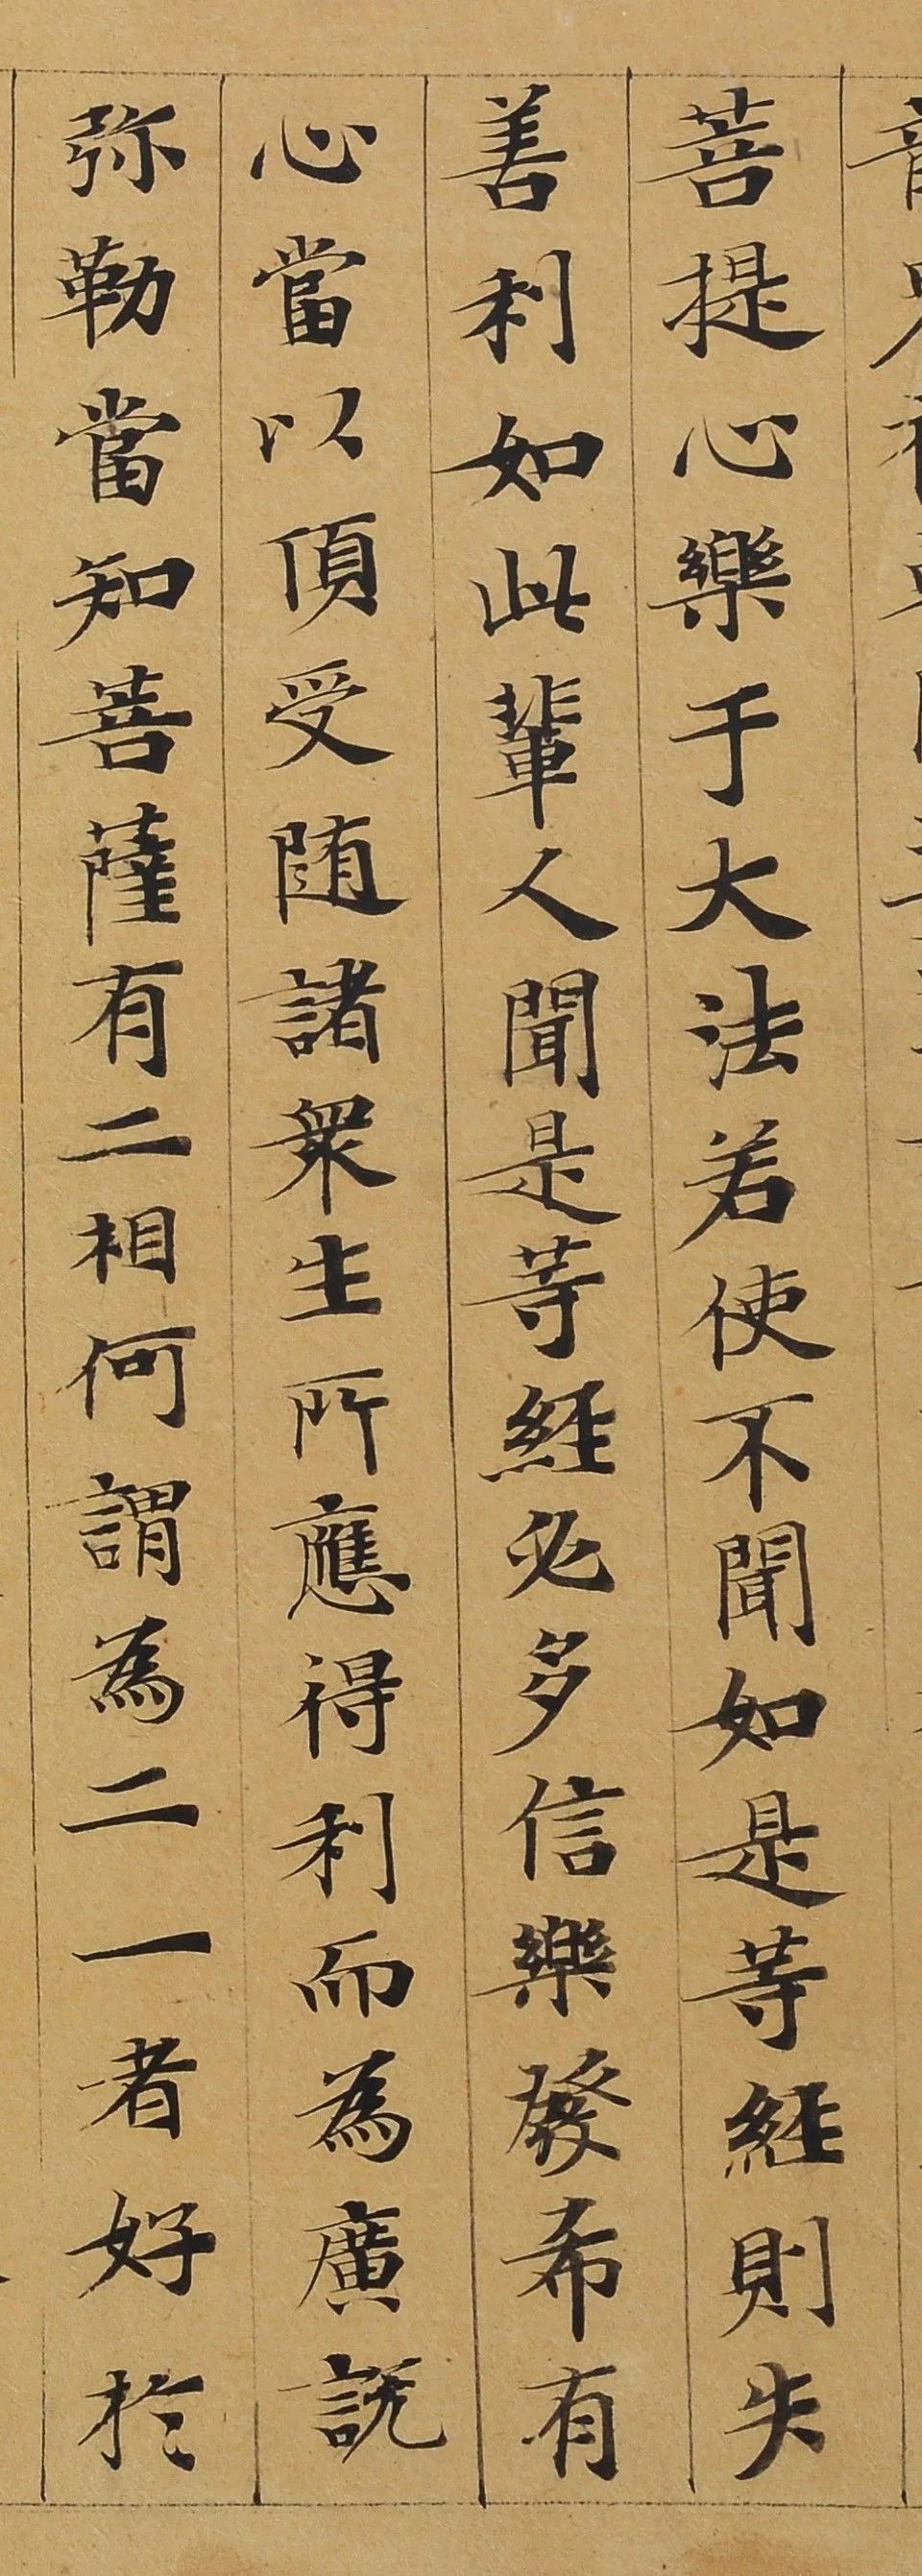 菩提心樂于大法若使不聞如是等經則失
善利如此輩人聞是等經必多信樂發希有
心當以頂受随諸衆生所應得利而為廣説
弥勒當知菩薩有二相何謂為二一者好於